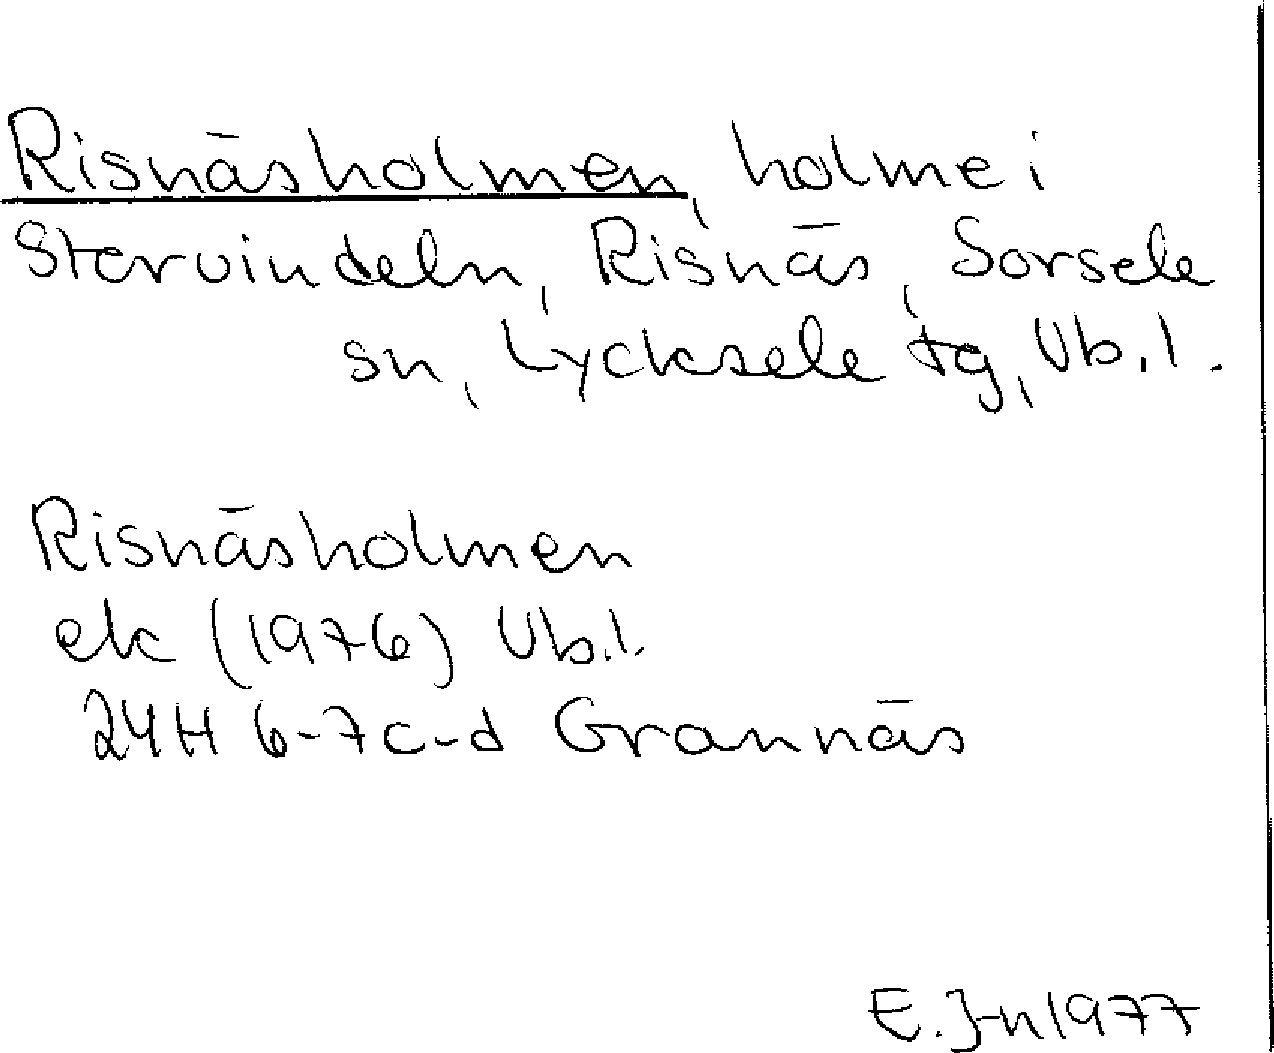 Risnäsholmen, holme i
Storvindeln, Risnäs, Sorsele
sn, Lycksele tg, Vb.l.
Risnäsholmen
ek (1976) Vb.l.
24H 6-7c-d Grannäs
E. J-n 1977